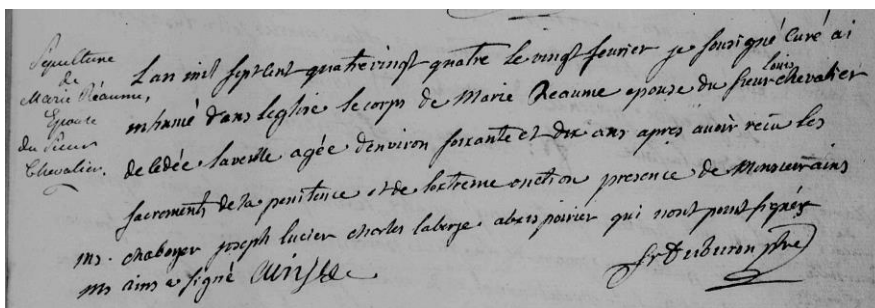 Sepulture
de
Marie Réaume,
Epouse
du Sieur
Chevalier.
Lan mil sept cent quatre vingt quatre le vingt fevrier je sousigné Curé ai
inhumé dans leglise le corps de Marie Reaume epouse du sieur louis chevalier
decedée la veille agée denviron soixante et dix ans apres avoir reçu les
sacrements de la penitence et de lextreme onction presence de Monsieur ains
mr. chaboyer joseph lucier charles laberge alexis poirier qui nont point signés
mr ains a signé